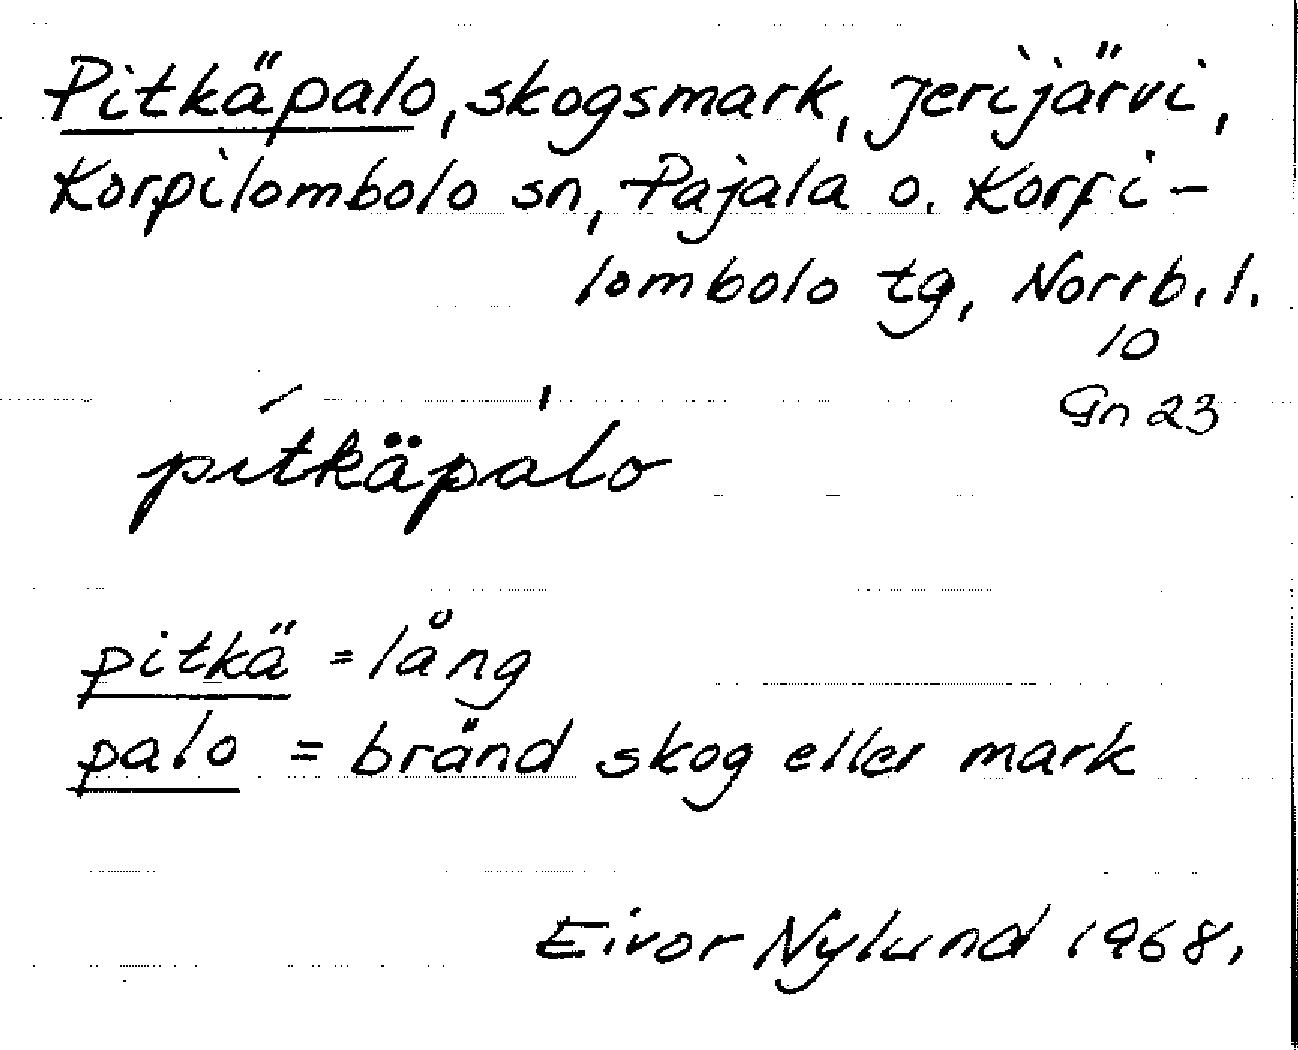 Pitkäpalo, skogsmark, Jerijärvi,
Korpilombolo sn, Pajala o. Korpi-
lombolo tg, Norrb. l.
10
Gn 23
pitkäpalo
pitkä = lång
palo = bränd skog eller mark
Eivor Nylund 1968.